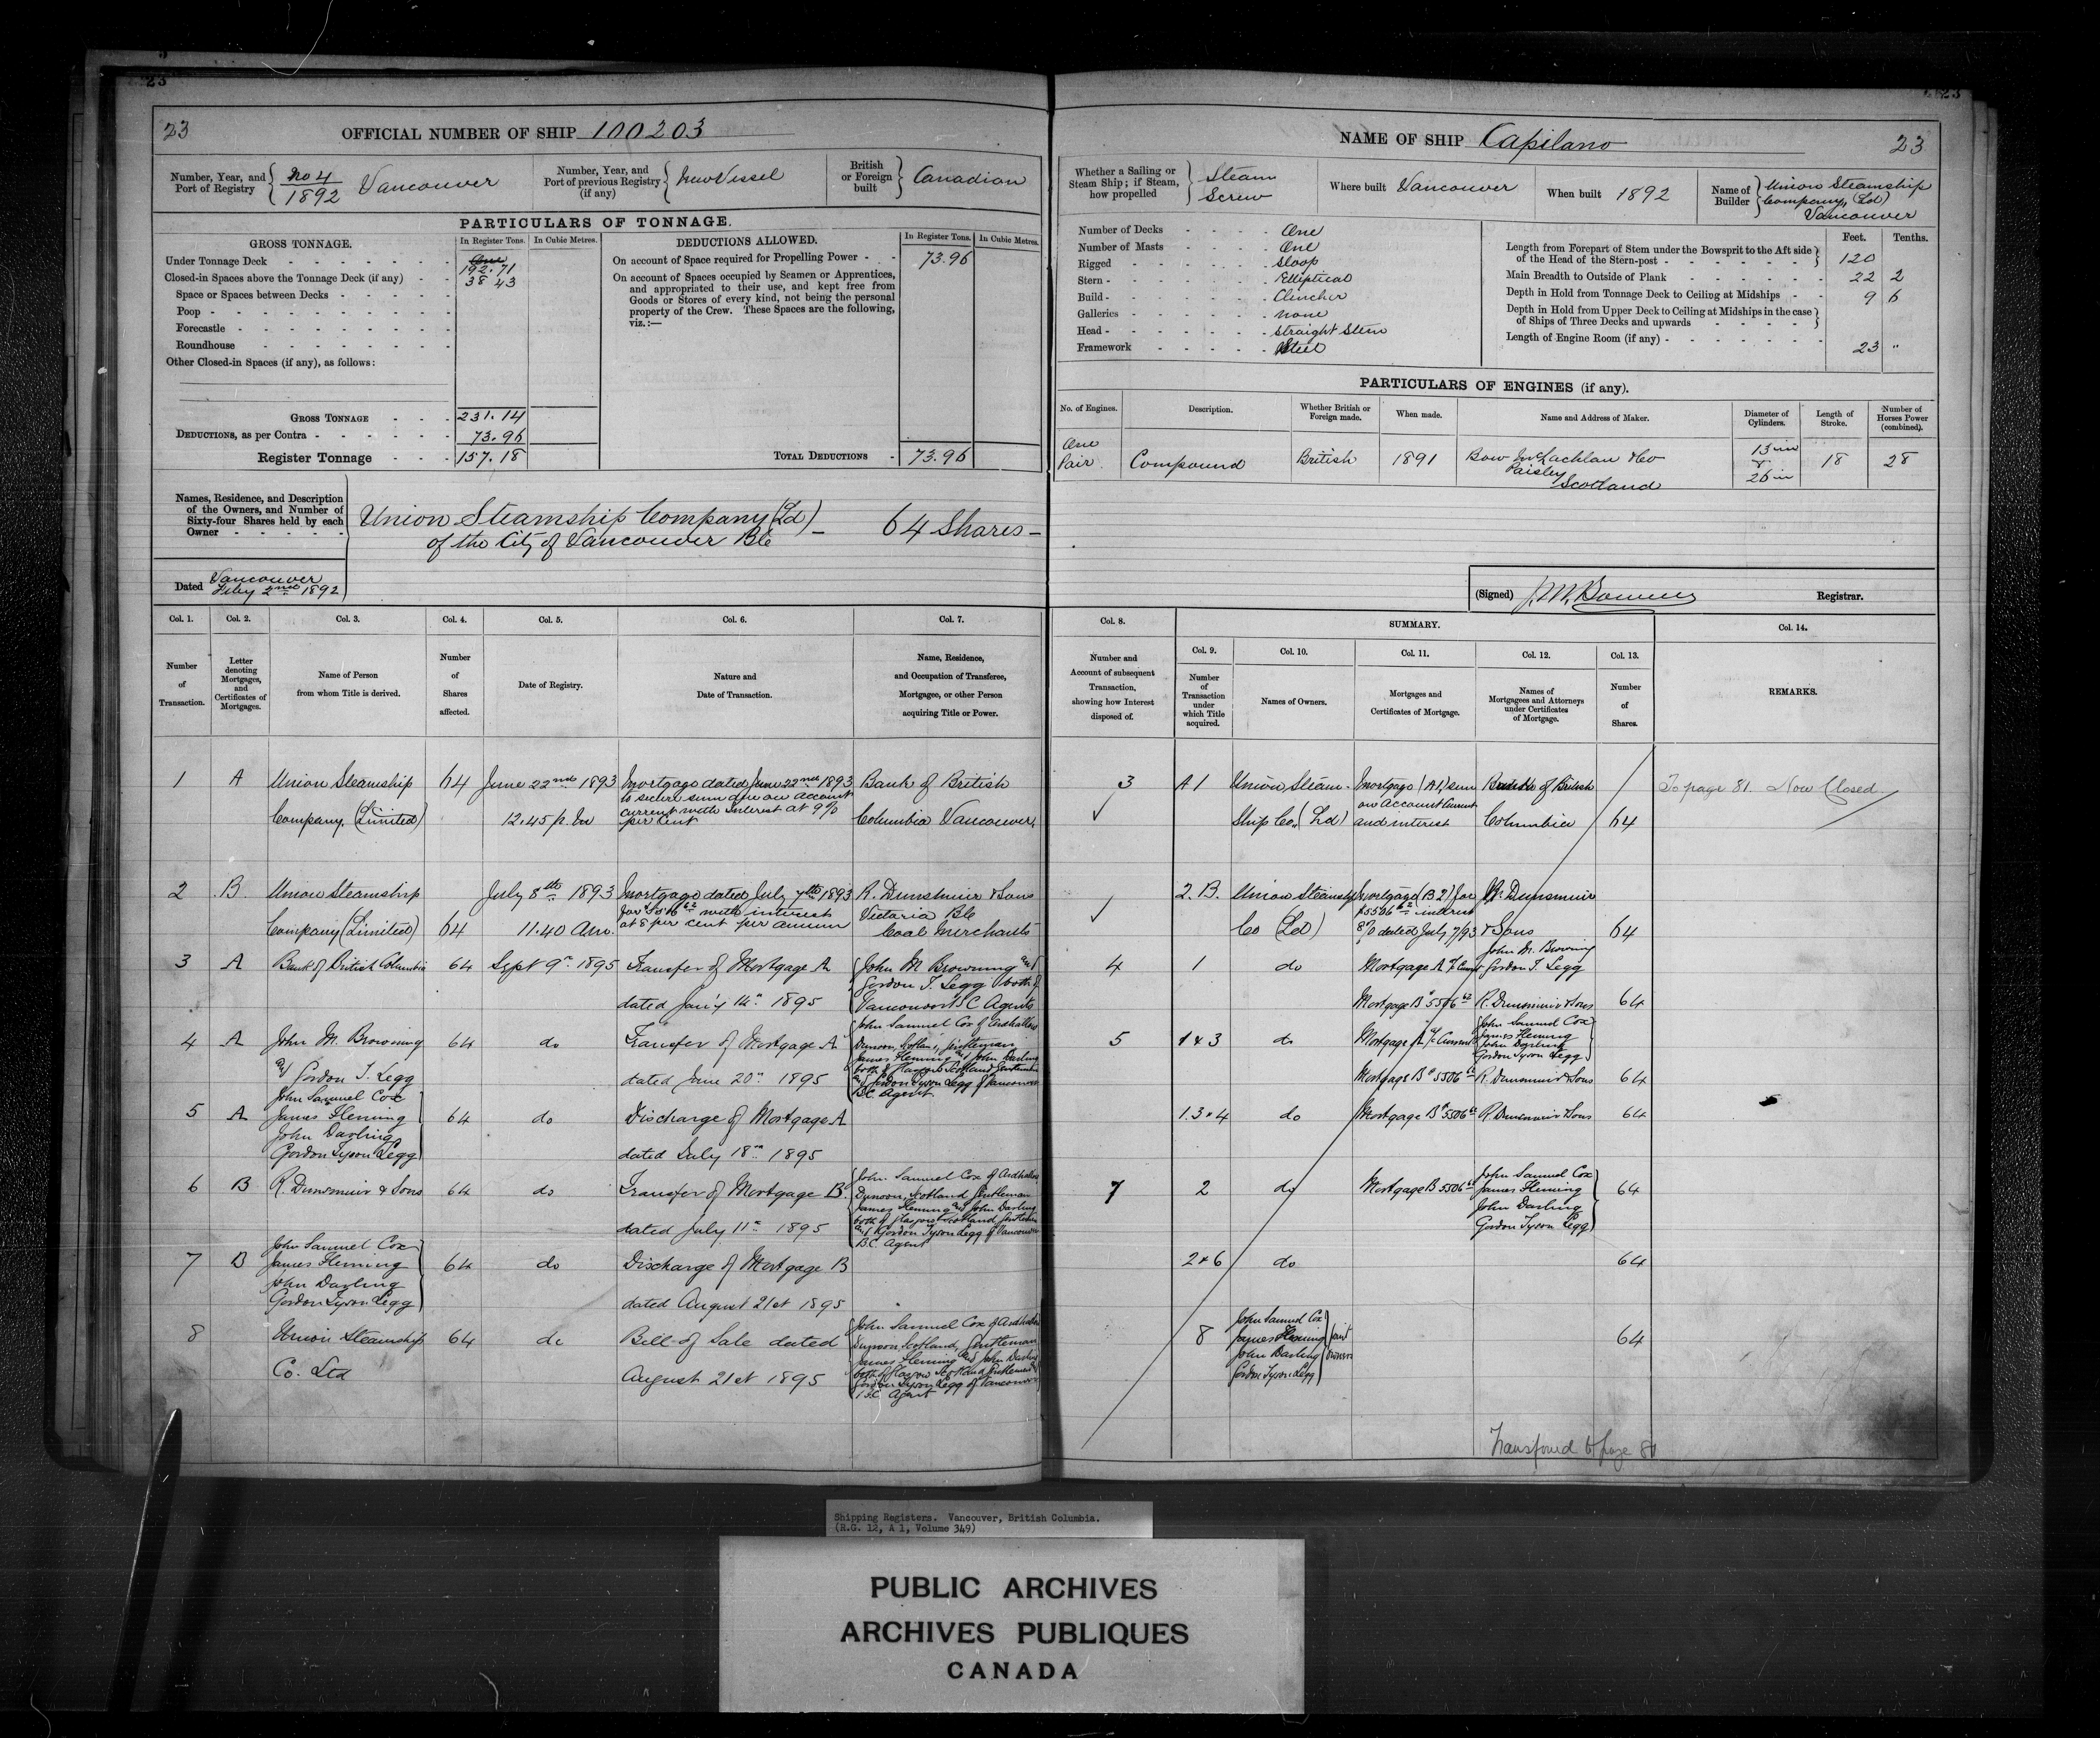 23
OFFICIAL NUMBER OF SHIP 100203
Number, Year, and Port of Registry { No 4 / 1892 Vancouver
Number, Year, and Port of previous Registry (if any) { New Vessel
British or Foreign built } Canadian
PARTICULARS OF TONNAGE.
GROSS TONNAGE.
In Register Tons. In Cubic Metres.
Under Tonnage Deck 192.71
Closed-in Spaces above the Tonnage Deck (if any) 38 43
Space or Spaces between Decks
Poop
Forecastle
Roundhouse
Other Closed-in Spaces (if any), as follows:
GROSS TONNAGE 231.14
DEDUCTIONS, as per Contra 73.96
Register Tonnage 157.18
DEDUCTIONS ALLOWED.
In Register Tons. In Cubic Metres.
On account of Space required for Propelling Power 73.96
On account of Spaces occupied by Seamen or Apprentices,
and appropriated to their use, and kept free from
Goods or Stores of every kind, not being the personal
property of the Crew. These Spaces are the following,
viz.:—
TOTAL DEDUCTIONS 73.96
Names, Residence, and Description
of the Owners, and Number of
Sixty-four Shares held by each
Owner
Union Steamship Company (Ld) — 64 Shares —
of the City of Vancouver BC
Dated Vancouver
Feby 2nd 1892
Col. 1. Col. 2. Col. 3. Col. 4. Col. 5. Col. 6. Col. 7.
Number of Transaction.
Letter denoting Mortgages, and Certificates of Mortgages.
Name of Person from whom Title is derived.
Number of Shares affected.
Date of Registry.
Nature and Date of Transaction.
Name, Residence, and Occupation of Transferee, Mortgagee, or other Person acquiring Title or Power.
1 A Union Steamship 64 June 22nd 1893 Mortgage dated June 22nd 1893 Bank of British
to secure sum due on account
current with interest at 9%
Company. (Limited) 12.45 p. m per cent Columbia Vancouver.
2 B. Union Steamship July 8th 1893 Mortgage dated July 7th 1893 R. Dunsmuir & Sons
for $5506 62 with interest Victoria BC
Company (Limited) 64 11.40 Am. at 8 per cent per annum Coal Merchants
3 A Bank of British Columbia 64 Sept 9th 1895 Transfer of Mortgage A { John M Browning and
Gordon T. Legg both of
dated Jan'y 14th 1895 Vancouver B C Agents
4 A John M. Browning 64 do Transfer of Mortgage A
and Gordon T. Legg dated June 20th 1895
John Samuel Cox of Ardhallow
Dunoon, Scotland, Gentleman
James Fleming and John Darling
both of Glasgow Scotland Gentlemen
and Gordon Tyson Legg of Vancouver
B.C. Agent.
5 A John Samuel Cox
James Fleming
John Darling
Gordon Tyson Legg } 64 do Discharge of Mortgage A
dated July 18th 1895
6 B R. Dunsmuir & Sons 64 do Transfer of Mortgage B.
dated July 11th 1895
John Samuel Cox of Ardhallow
Dunoon, Scotland Gentleman
James Fleming and John Darling
both of Glasgow Scotland Gentlemen
and Gordon Tyson Legg of Vancouver
B.C. Agent
7 B John Samuel Cox
James Fleming
John Darling
Gordon Tyson Legg } 64 do Discharge of Mortgage B
dated August 21st 1895
8 Union Steamship 64 do Bill of Sale dated
Co. Ltd August 21st 1895
John Samuel Cox of Ardhallow
Dunoon, Scotland, Gentleman
James Fleming and John Darling
both of Glasgow Scotland Gentlemen
Gordon Tyson Legg of Vancouver
B.C. Agent
NAME OF SHIP Capilano
23
Whether a Sailing or Steam Ship; if Steam, how propelled } Steam
Screw
Where built Vancouver
When built 1892
Name of Builder } Union Steamship
Company, (Ld)
Vancouver
Number of Decks One
Number of Masts One
Rigged Sloop
Stern Elliptical
Build Clincher
Galleries none
Head straight Stem
Framework Steel
Feet. Tenths.
Length from Forepart of Stem under the Bowsprit to the Aft side
of the Head of the Stern-post 120
Main Breadth to Outside of Plank 22 2
Depth in Hold from Tonnage Deck to Ceiling at Midships 9 6
Depth in Hold from Upper Deck to Ceiling at Midships in the case
of Ships of Three Decks and upwards
Length of Engine Room (if any) 23 "
PARTICULARS OF ENGINES (if any).
No. of Engines. Description. Whether British or Foreign made. When made. Name and Address of Maker. Diameter of Cylinders. Length of Stroke. Number of Horses Power (combined).
One Pair. Compound British 1891 Bow McLachlan & Co
Paisley
Scotland
13 in
&
26 in
18 28
(Signed) Registrar.
Col. 8. SUMMARY. Col. 14.
Col. 9. Col. 10. Col. 11. Col. 12. Col. 13.
Number and Account of subsequent Transaction, showing how Interest disposed of.
Number of Transaction under which Title acquired.
Names of Owners.
Mortgages and Certificates of Mortgage.
Names of Mortgagees and Attorneys under Certificates of Mortgage.
Number of Shares.
REMARKS.
3 A 1 Union Steam- Mortgage (A1) sum Bank of British To page 81. Now Closed.
on Account Current
Ship Co. (Ld) and interest Columbia 64
2 B. Union Steamship Mortgage (B 2) for R. Dunsmuir
$5506 62 interest
Co (Ld) 8% dated July 7/93 & Sons 64
4 1 do Mortgage A a/c Current John M. Browning
Gordon T. Legg
Mortgage B $5506 62 R. Dunsmuir & Sons 64
5 1 & 3 do Mortgage A a/c Current { John Samuel Cox
James Fleming
John Darling
Gordon Tyson Legg }
Mortgage B $5506 62 R. Dunsmuir & Sons 64
1.3 & 4 do Mortgage B $5506 62 R. Dunsmuir & Sons 64
7 2 do Mortgage B 5506 62 John Samuel Cox
James Fleming
John Darling
Gordon Tyson Legg } 64
2 & 6 do 64
8 John Samuel Cox
James Fleming
John Darling
Gordon Tyson Legg } Joint Owners 64
Transferred to page 81
Shipping Registers. Vancouver, British Columbia.
(R.G. 12, A 1, Volume 349)
PUBLIC ARCHIVES
ARCHIVES PUBLIQUES
CANADA